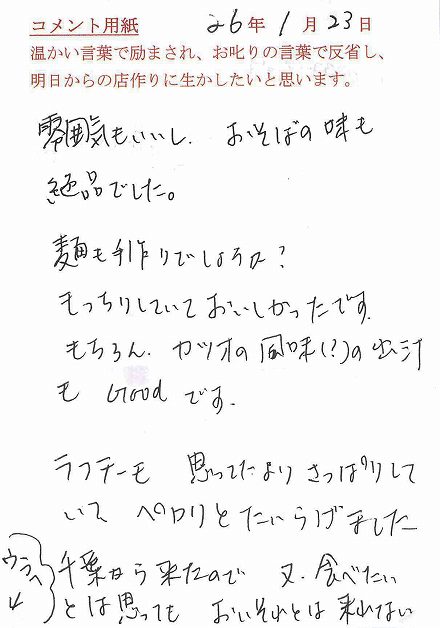 コメント用紙 26年 1月 23日
温かい言葉で励まされ、お叱りの言葉で反省し、
明日からの店作りに生かしたいと思います。
雰囲気もいいし、おそばの味も
絶品でした。
麺も手作りでしょうか?
もっちりしていておいしかったです。
もちろん、カツオの風味(?)の出汁
も Good です。
ラフテーも 思ってたよりさっぱりして
いて ペロリとたいらげました
千葉から来たので 又、食べたい
とは思っても おいそれとは来れない
ウラへ